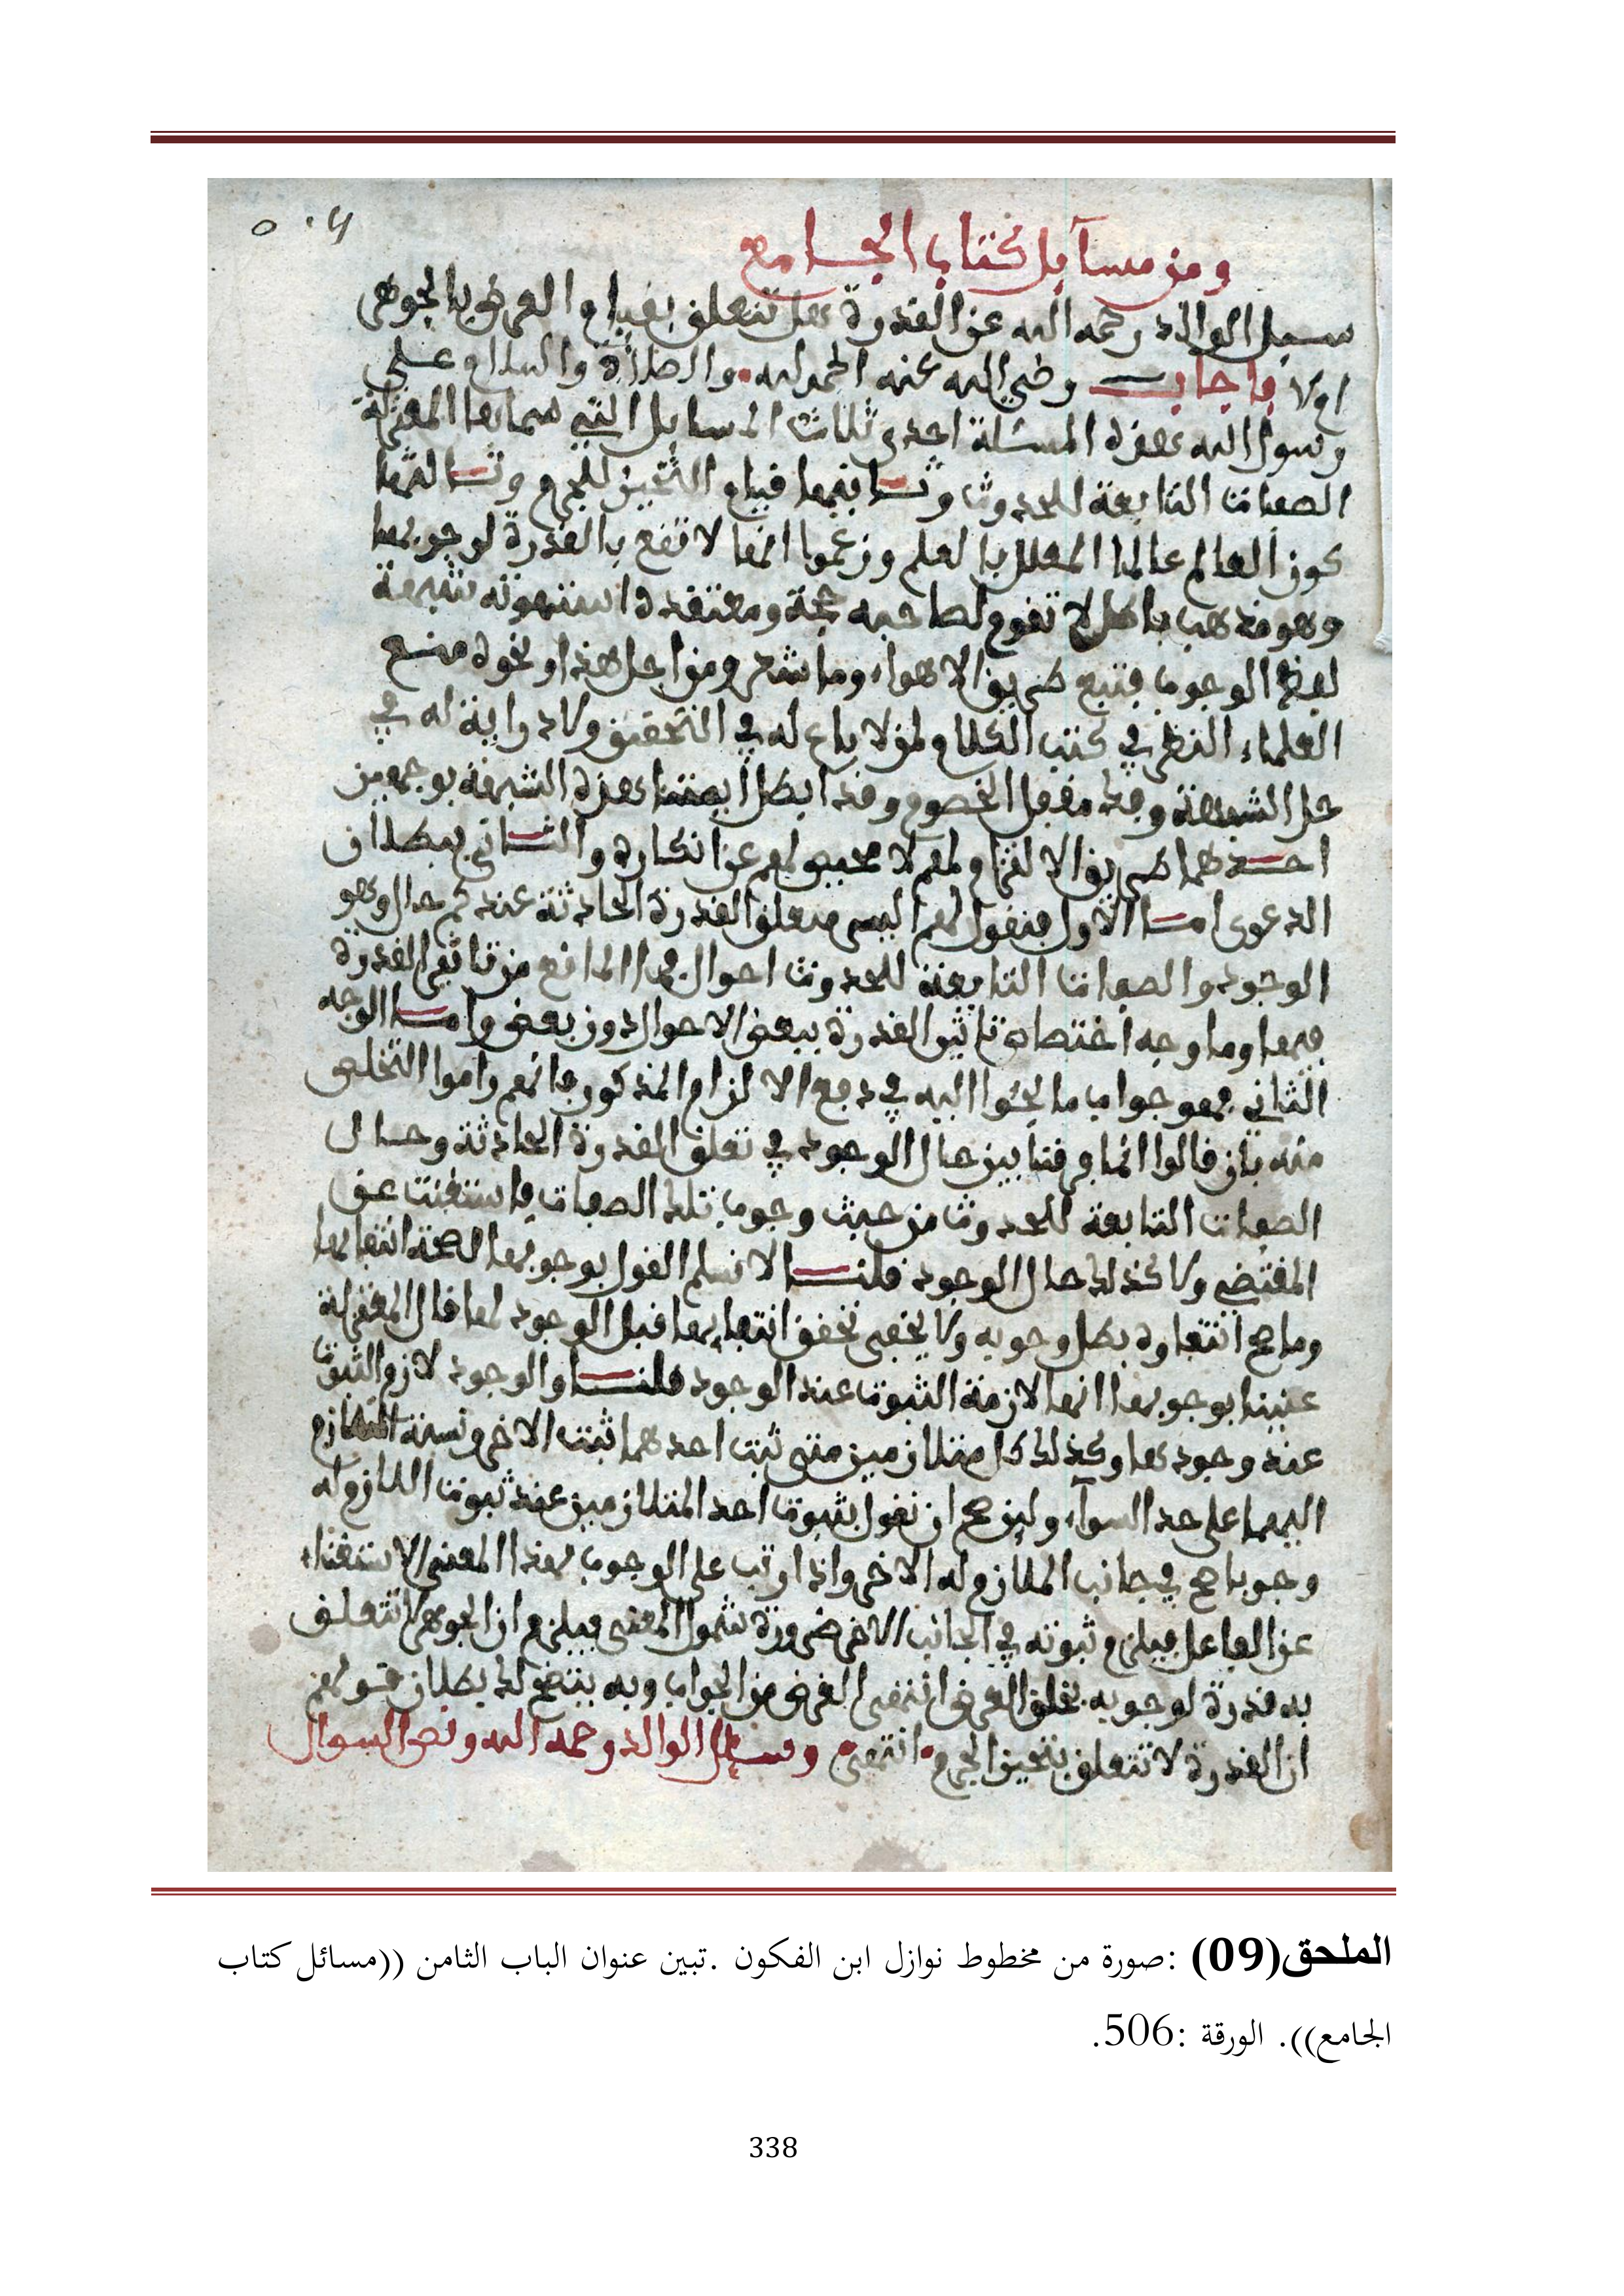 ومن مسآيل كتاب الجامع
سيل الوالد رحمه الله عن القدرة هل تتعلق بقيام العرض بالجوهر
ام لا فاجاب رضي الله عنه الحمد لله والصلاة والسلام على
رسول الله هذه المسئلة احدى ثلاث المسايل التي سماها المعتزلة
الصفات التابعة للحدوث وثانيها قيام التحيز للجرم وثالثها
كون العالم عالما المعلل بالعلم وزعموا انها لا تقع بالقدرة لوجوبها
وهو مذهب باطل لا تقوم لصاحبه حجة ومعتقده استهوته شبهة
لفظ الوجوب فتبع طريق الاهواء وما شعر ومن اجل هذا ونحوه منع
العلماء النظر في كتب الكلام لمن لا باع له في التحقيق ولا دراية له في
حل الشبهة وقطع الخصوم وقد ابطل ايمتنا هذه الشبهة بوجهين
احدهما طريق الالتزام لهم لا محيص لهم عن انكاره والثاني بمطلان
الدعوى اما الاول فنقول لهم اليس متعلق القدرة الحادثة عندكم حال وهو
الوجود والصفات التابعة للحدوث احوال فما المانع من تاثير القدرة
فيها وما وجه اختصاص تاثير القدرة ببعض الاحوال دون بعض واما الوجه
الثاني فهو جواب ما لجئوا اليه في دفع الالزام المذكور فانهم راموا التخلص
منه بان قالوا انما فرقنا بين حال الوجود في تعلق القدرة الحادثة وحال
الصفات التابعة للحدوث من حيث وجوب تلك الصفات فاستغنت عن
المقتضي ولا كذلك حال الوجود قلنا لا نسلم القول بوجوبها لصحة انتفايها
وما صح انتفاوه بطل وجوبه ولا يخفى تحقق انتفايها قبل الوجود لها قال المعتزلة
عنينا بوجوبها انها لازمة الثبوت عند الوجود قلنا والوجود لازم الثبوت
عند وجودها وكذلك كل متلازمين متى ثبت احدهما ثبت الاخر ونسبة التلازم
اليهما على حد السوآء ولين صح ان نقول بثبوت احد المتلازمين عند ثبوت اللازم له
وجوبا صح في جانب الملازم له الاخر واذا رتب على الوجوب بهذا المعنى الاستغناء
عن الفاعل فيلزم ثبوته في الجانب الاخر ضرورة شمول المعنى فيلزم ان الجوهر لا تتعلق
به قدرة لوجوبه بخلق العرض انتهى الغرض من الجواب وبه يتضح لك بطلان قولهم
ان القدرة لا تتعلق بتحيز الجرم انتهى وسيل الوالد رحمه الله ونص السوال
الملحق(09) :صورة من مخطوط نوازل ابن الفكون .تبين عنوان الباب الثامن ((مسائل كتاب
الجامع)). الورقة :506.
338